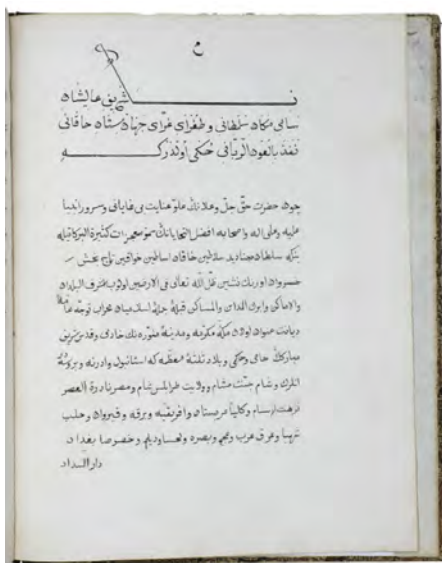 نشان شريف عاليشان
سامى مكان سلطانى و طغراى غراى جهان ستان خاقانى
نفذ بالعون الربانى حكمى اولدركه
چون حضرت حق جل وعلانك علو عنايت بى غاياتى وسرور انبيا
عليه وعلى اله واصحابه افضل التحاياتنك معجزات كثيرة البركاتيله
بنكه سلطان صناديد سلاطين خاقان اساطين خواقين تاج بخش
خسروان اورنك نشين ظل الله تعالى فى الارضين اولوب اشرف البلدان
والاماكن وابرك المداين والمساكن قبلۀ جملۀ اسلاميان محراب توجه
ديانت عنوان اولان مكۀ مكرمه ومدينۀ منوره نك خادمى وقدس شريف
مباركك حامى وحاكمى و بلاد ثلثۀ معظمه كه استانبول وادرنه و بروسه
انلرك و شام جنت مشام و ولايت طرابلس شام و مصر نادرة العصر
وافريقيه و برقه و قيروان و حلب
و عراق عرب وعجم و بصره و لحسا و ديلم و خصوصا بغداد
دار السداد